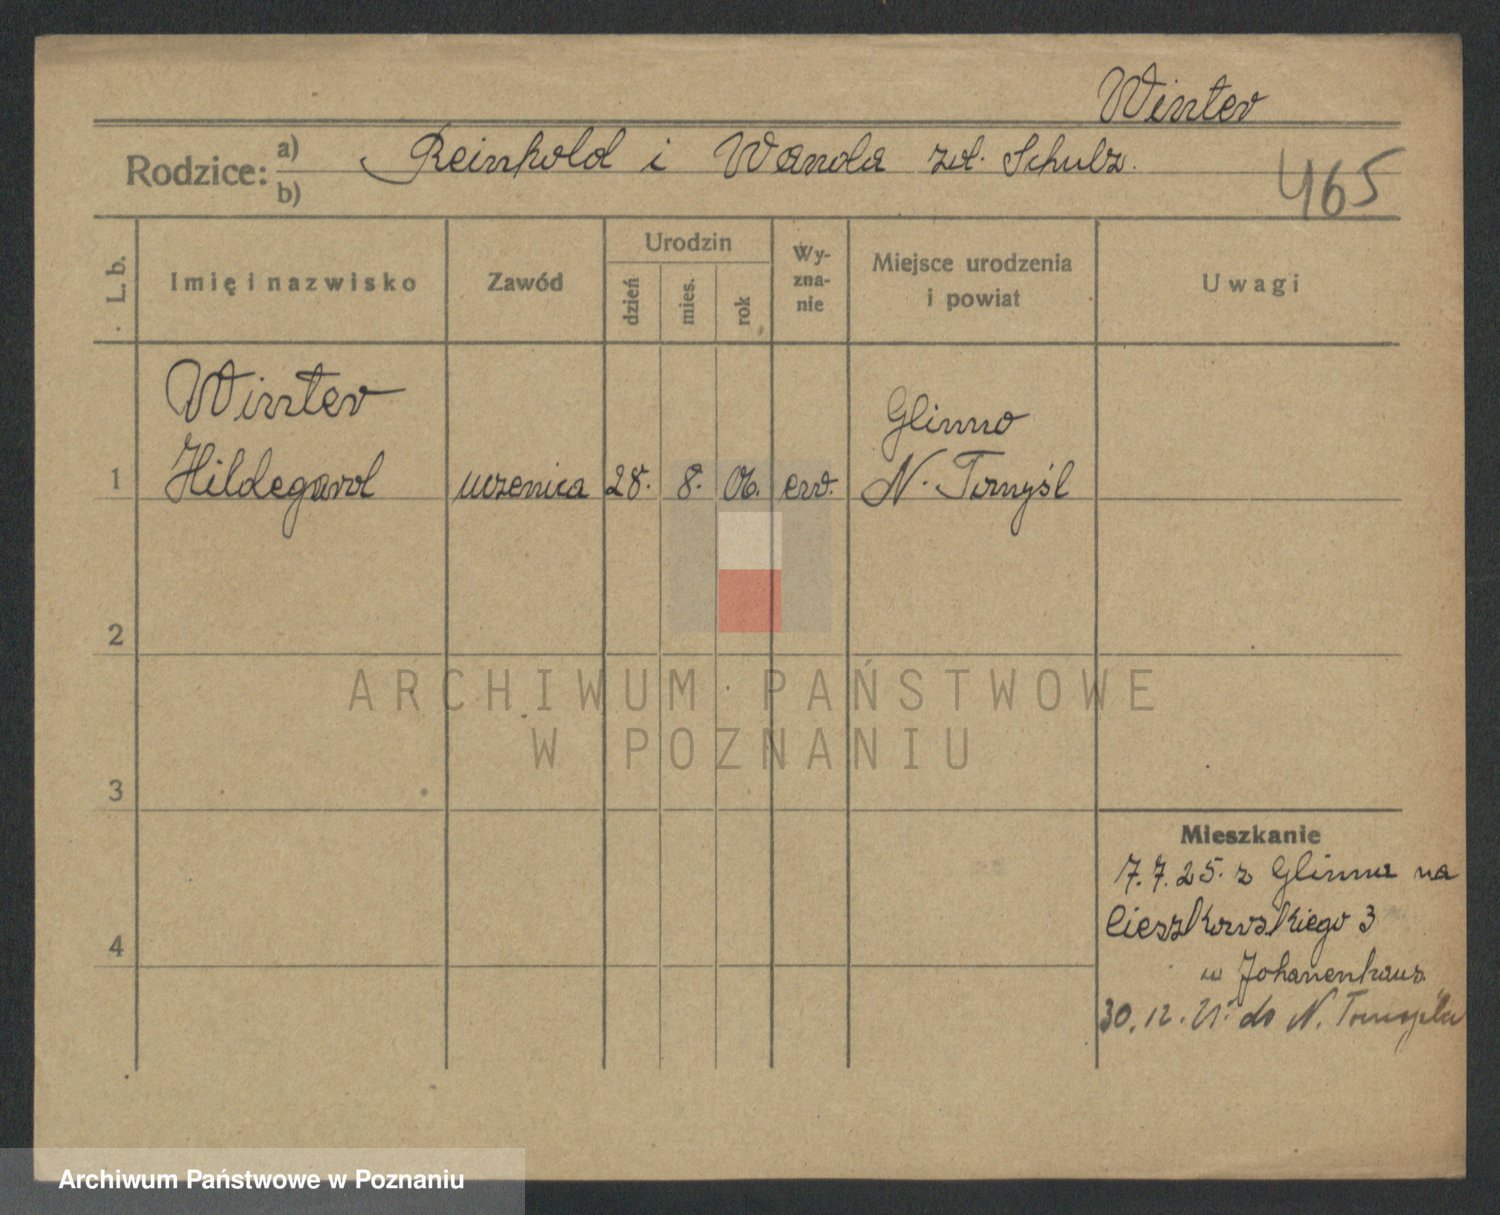 Winter
Rodzice: a) b) Reinhold i Wanda zd. Schulz.
465
L. b.
Imię i nazwisko
Zawód
Urodzin
dzień
mies.
rok
Wy-
zna-
nie
Miejsce urodzenia
i powiat
Uwagi
Winter
Glinno
1 Hildegard uczenica 28. 8. 06. ew. N. Tomyśl
2
ARCHIWUM PAŃSTWOWE
W POZNANIU
3
Mieszkanie
7.7.25. z Glinna na
4 Cieszkowskiego 3
w Johanenhaus.
30.12. do N. Tomyśla
Archiwum Państwowe w Poznaniu